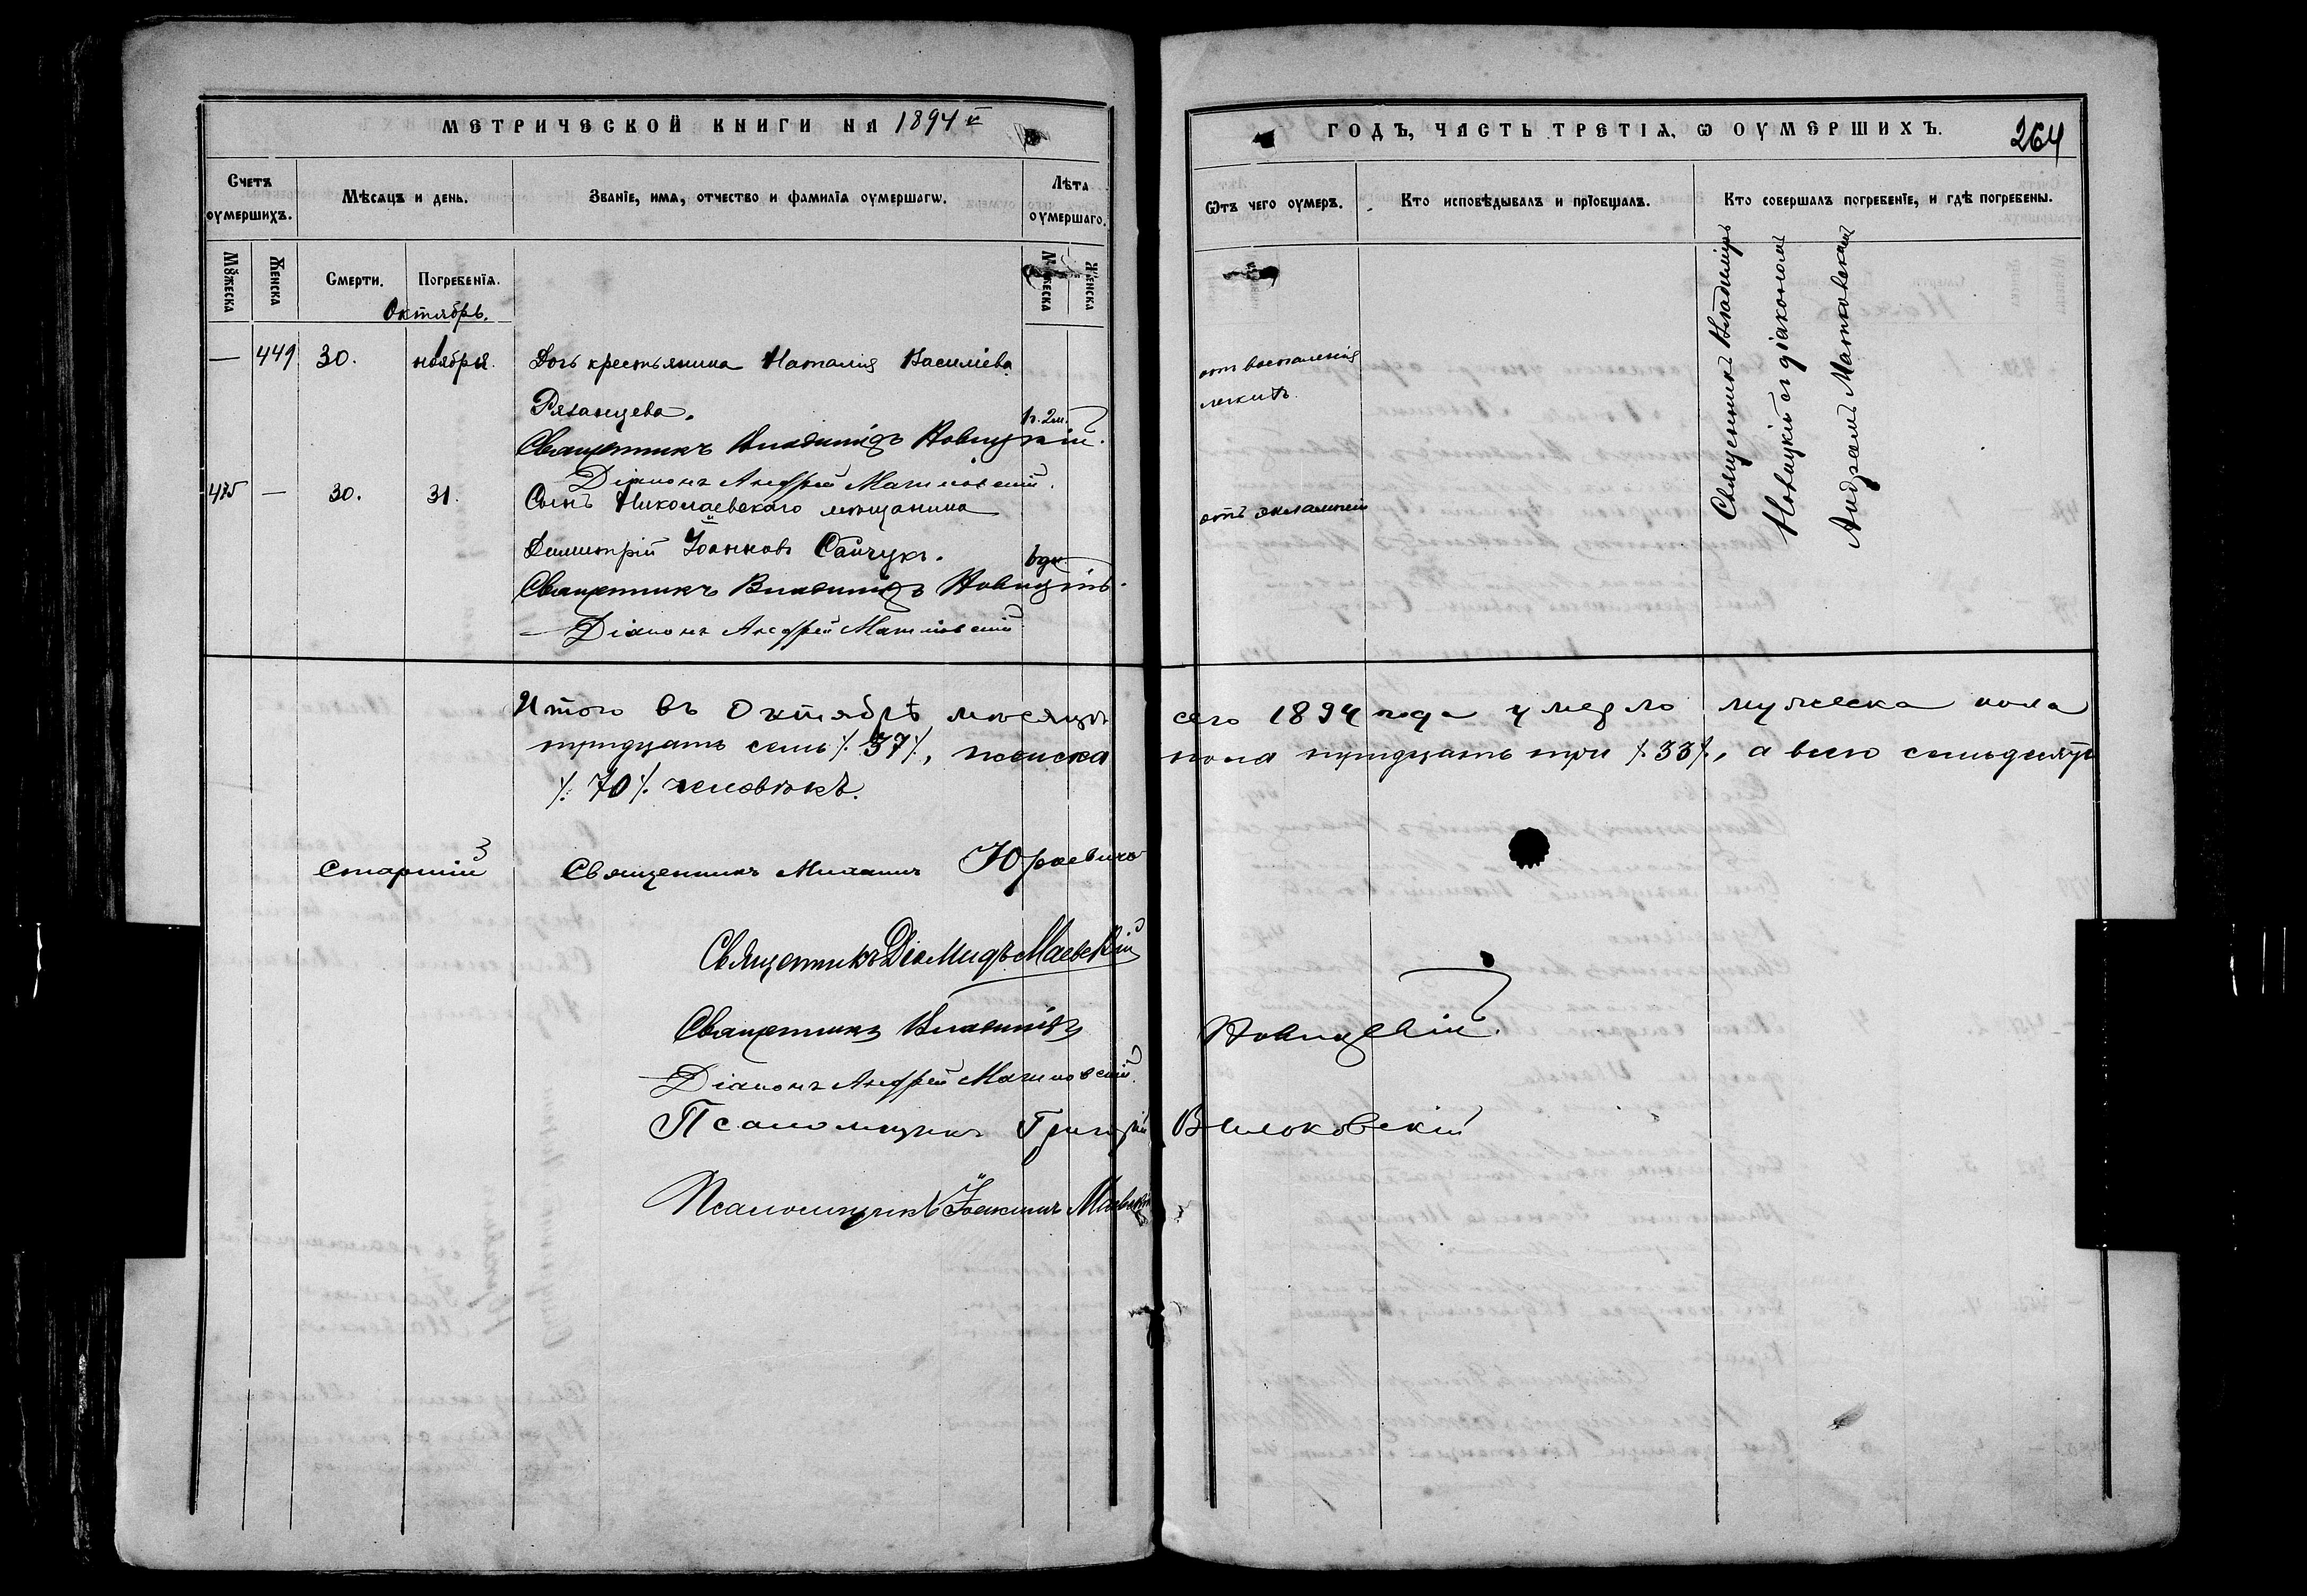 МЕТРИЧЕСКОЙ КНИГИ НА 1894 й
Счетъ оумершихъ.
Мѣсяцъ и день.
Званіе, имя, отчество и фамилія оумершагѡ.
Лѣта оумершаго.
Мꙋжеска
Женска
Смерти.
Погребенія.
Мꙋжеска
Женска
Октябрь.
— 449 30. 1 ноября. Дочь крестьянина Наталія Василіева
Рязанцева. 1 г. 2 м.
Священникъ Владиміръ Новицкій.
Діаконъ Андрей Матковскій.
475 — 30. 31. Сынъ Николаевскаго мѣщанина
Димитрій Іоанновъ Сайчукъ.
Священникъ Владиміръ Новицкій.
Діаконъ Андрей Матковскій
Итого въ Октябрѣ мѣсяцѣ
тридцать семь /.37/., женска
/.70/. человѣкъ.
Старшій Священникъ Михаилъ Юрьевичъ
Священникъ Діомидъ Маевскій
Священникъ Владиміръ
Діаконъ Андрей Матковскій
Псаломщикъ Григорій
Псаломщикъ Іоакимъ Маевскій
ГОДЪ, ЧАСТЬ ТРЕТІЯ, Ѡ ОУМЕРШИХЪ.
264
Ѿтъ чего оумеръ.
Кто исповѣдывалъ и пріобщалъ.
Кто совершалъ погребеніе, и гдѣ погребены.
отъ воспаленія
легкихъ.
отъ эклампсіи
Священникъ Владиміръ
Новицкій съ діакономъ
Андреемъ Матковскимъ
сего 1894 года умерло мужеска пола
пола тридцать три /.33/., а всего семьдесятъ
Новицкій.
Вылоковскій